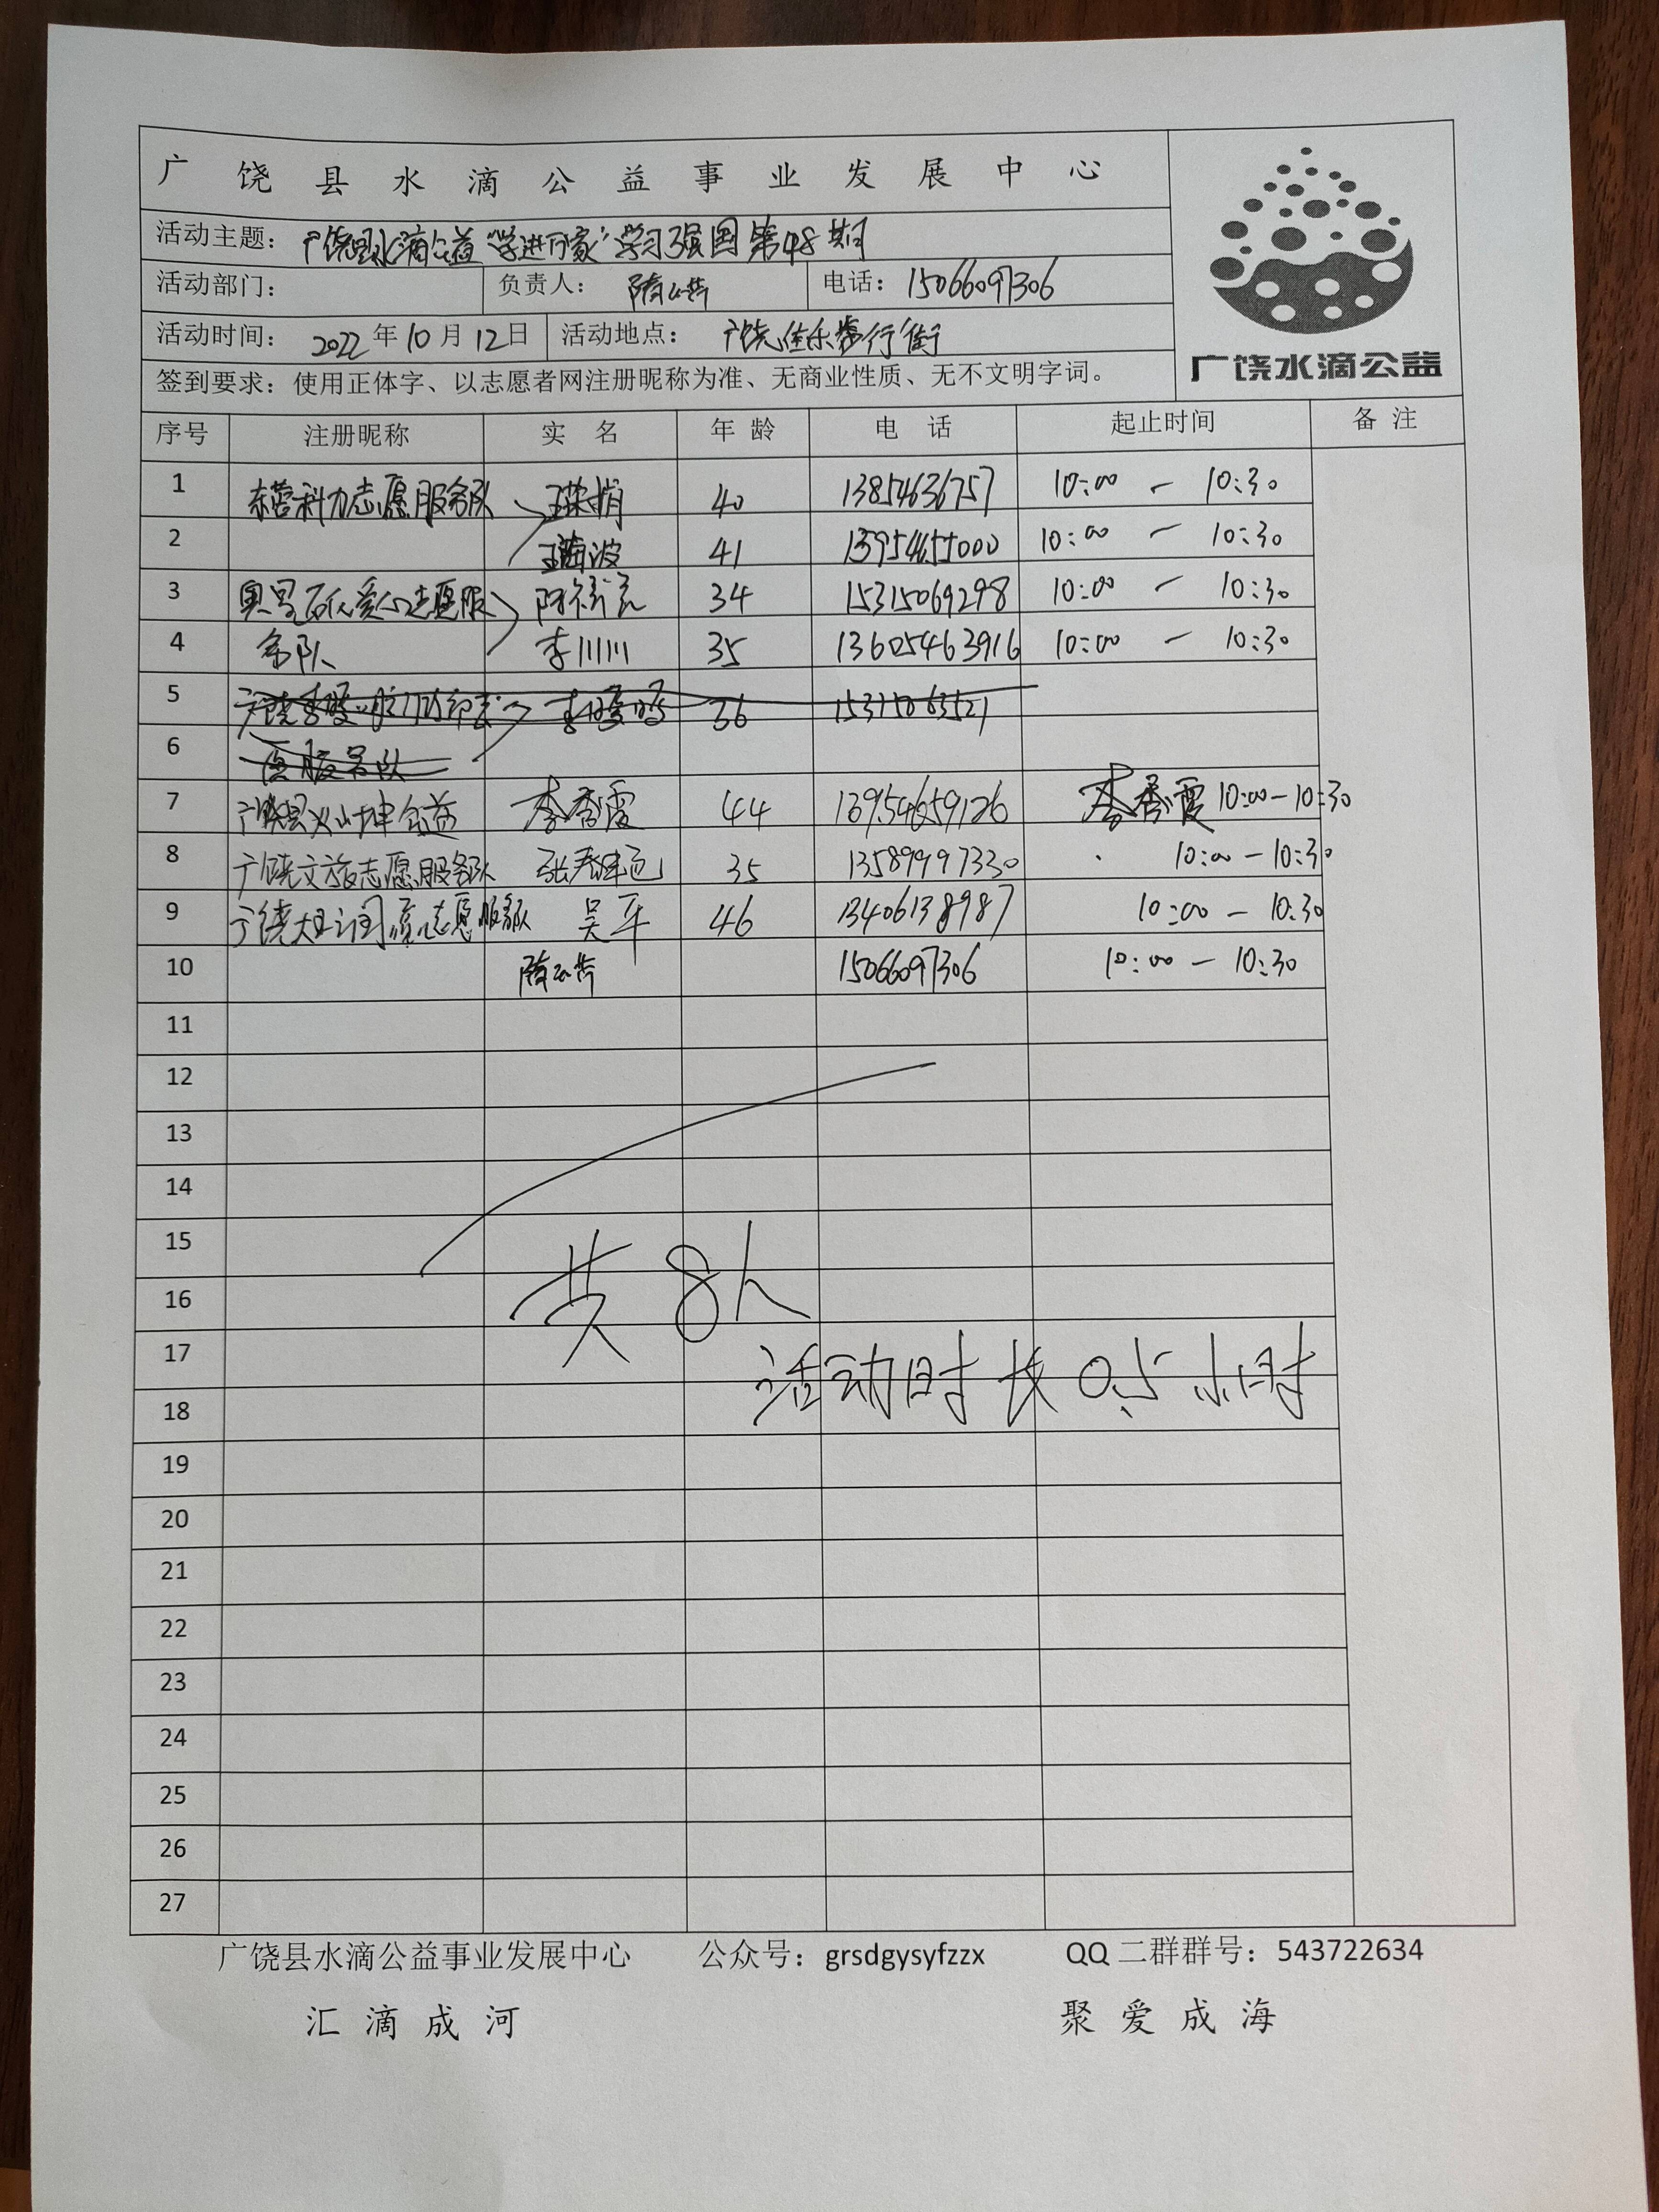 广饶县水滴公益事业发展中心
活动主题：广饶县水滴公益“学进万家”学习强国第48期
活动部门： 负责人： 电话：15066097306
活动时间：2022年10月12日 活动地点：广饶佳乐步行街
签到要求：使用正体字、以志愿者网注册昵称为准、无商业性质、无不文明字词。
广饶水滴公益
序号 注册昵称 实 名 年 龄 电 话 起止时间 备 注
1 东营科力志愿服务队 40 13854636757 10:00 — 10:30
2 41 13954655000 10:00 — 10:30
3 34 15315069298 10:00 — 10:30
4 务队 李川川 35 13605463916 10:00 — 10:30
5 36 15315063521
6 服务队
7 李秀霞 44 13954659126 李秀霞 10:00—10:30
8 广饶文旅志愿服务队 35 13589997330 10:00—10:30
9 志愿服务队 吴平 46 13406138987 10:00 — 10:30
10 15066097306 10:00 — 10:30
11
12
13
14
15
共8人
16
17
活动时长0.5小时
18
19
20
21
22
23
24
25
26
27
广饶县水滴公益事业发展中心 公众号：grsdgysyfzzx QQ二群群号：543722634
汇滴成河 聚爱成海